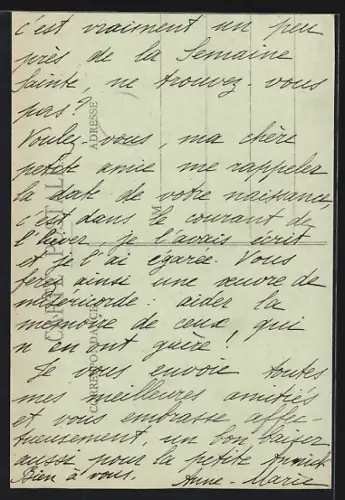 c'est vraiment un peu
près de la Semaine
Sainte, ne trouvez-vous
pas?
Voulez-vous, ma chère
petite amie me rappeler
la date de votre naissance,
c'est dans le courant de
l'hiver, je l'avais écrit
et je l'ai égarée. Vous
ferez ainsi une œuvre de
miséricorde: aider la
mémoire de ceux, qui
n'en ont guère!
Je vous envoie toutes
mes meilleures amitiés
et vous embrasse affec-
tueusement, un bon baiser
aussi pour la petite
Bien à vous. Anne-Marie
CARTE POSTALE
CORRESPONDANCE
ADRESSE